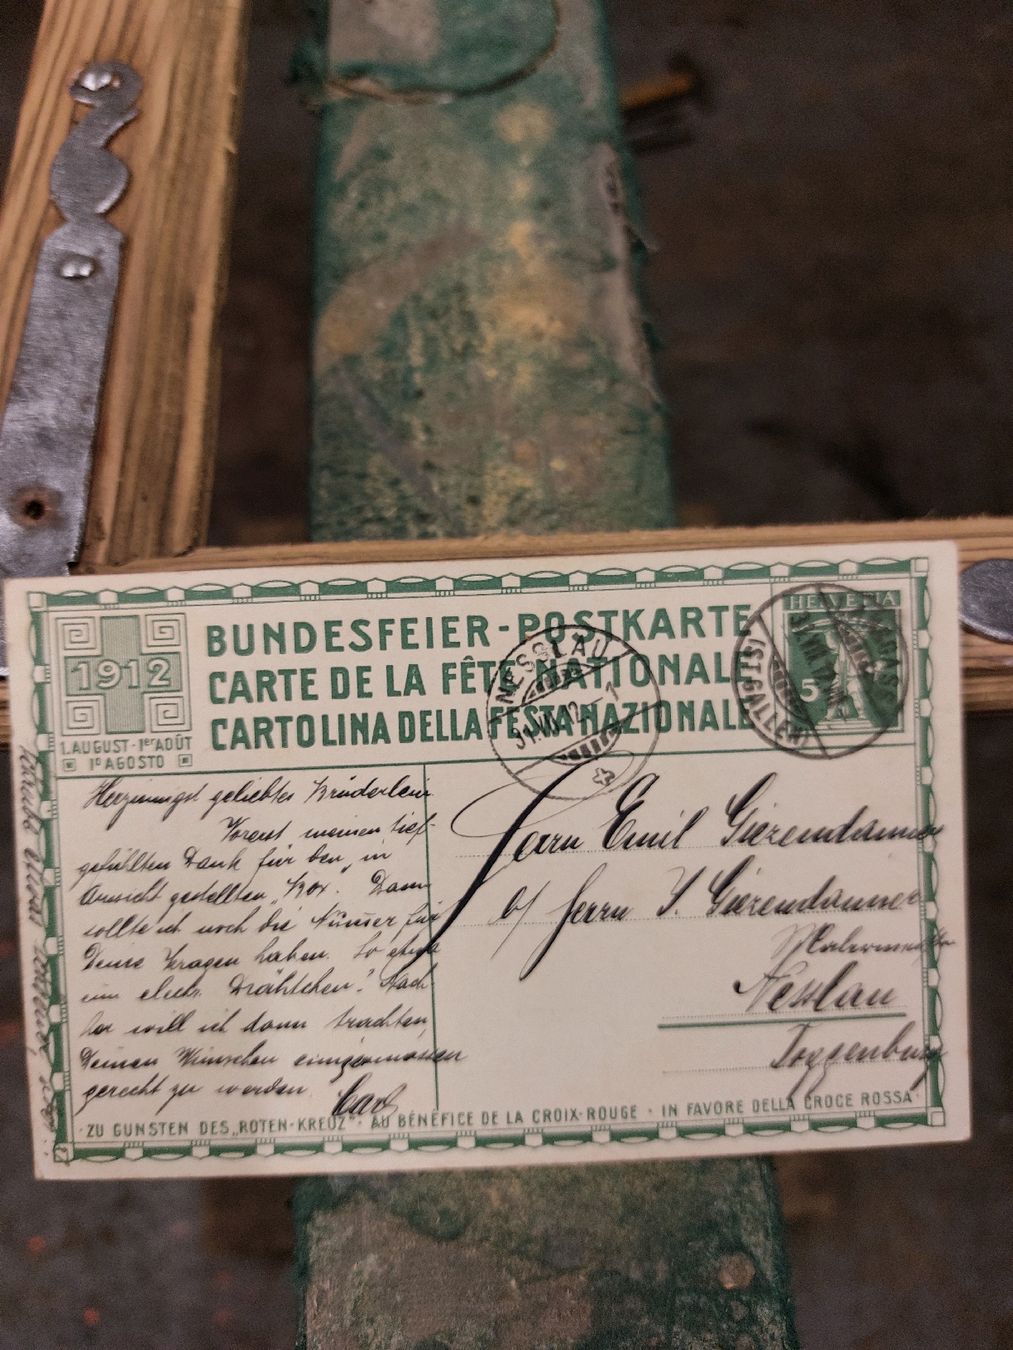 BUNDESFEIER-POSTKARTE
CARTE DE LA FÊTE NATIONALE
CARTOLINA DELLA FESTA NAZIONALE
1912
1. AUGUST · 1er AOÛT
1o AGOSTO
HELVETIA
5
NESSLAU
31.VII.12
(ST. GALLEN)
Herzinnigst geliebtes Brüderlein
Vorerst meinen tief-
gefühlten Dank für den „in
Aussicht gestellten" Box. Dann
sollte ich noch die Nummer für
Deine Kragen haben. So
ein elektr. Drähtchen? Nach-
her will ich dann trachten,
Deinen Wünschen einigermassen
gerecht zu werden Carl
Herrn Emil Giezendanner
b/ Herrn J. Giezendanner
Malermeister
Nesslau
Toggenburg
ZU GUNSTEN DES „ROTEN-KREUZ" · AU BÉNÉFICE DE LA CROIX-ROUGE · IN FAVORE DELLA CROCE ROSSA